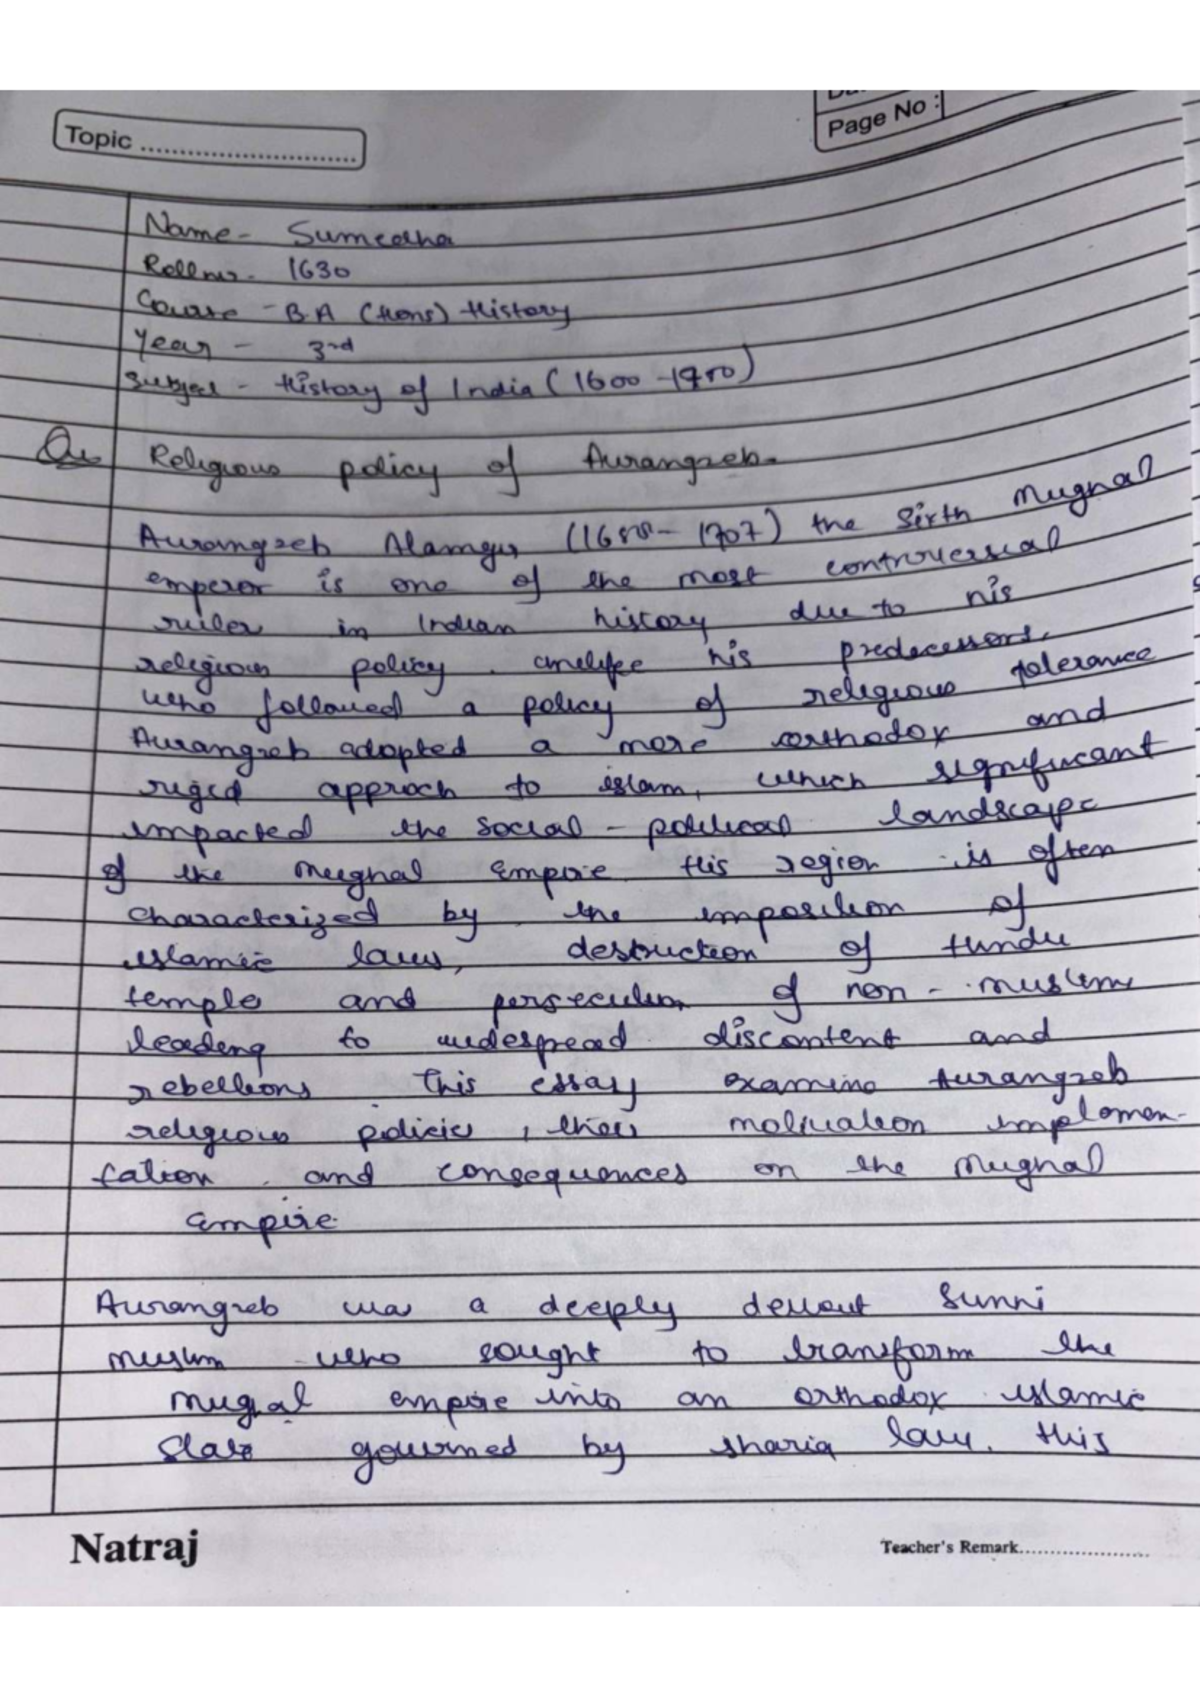 Topic
Page No :
Name - Sumedha
Rollno - 1630
Course - B.A (Hons) History
Year - 3rd
Subject - History of India (1600 - 1750)
Qu. Religious policy of Aurangzeb.
Aurangzeb Alamgir (1658 - 1707) the sixth Mughal
emperor is one of the most controversial
ruler in Indian history due to his
religious policy. unlike his predecessors,
who followed a policy of religious tolerance
Aurangzeb adopted a more orthodox and
rigid approch to islam, which significant
impacted the social - political landscape
of the Mughal Empire. His region is often
characterized by the imposition of
islamic laws, destruction of Hindu
temple and persecution of non - muslims
leading to widespread discontent and
rebellions. This essay examine Aurangzeb
religious policies, their motivation implemen-
tation and consequences on the Mughal
empire.
Aurangzeb was a deeply devout Sunni
muslim who sought to transform the
mughal empire into an orthodox islamic
state governed by sharia law. this
Natraj
Teacher's Remark